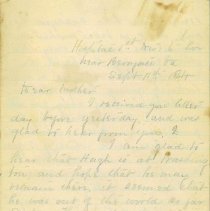 Hospital 1st Div 6 Cor
near Petersburg Va
Sept 11th 1864
Dear Mother
I received your letter
day before yesterday and was
glad to hear from you, I
I am glad to
hear that Hugh is at Washing
ton and hope that he may
remain there, it seemed that
he was out of the world as far